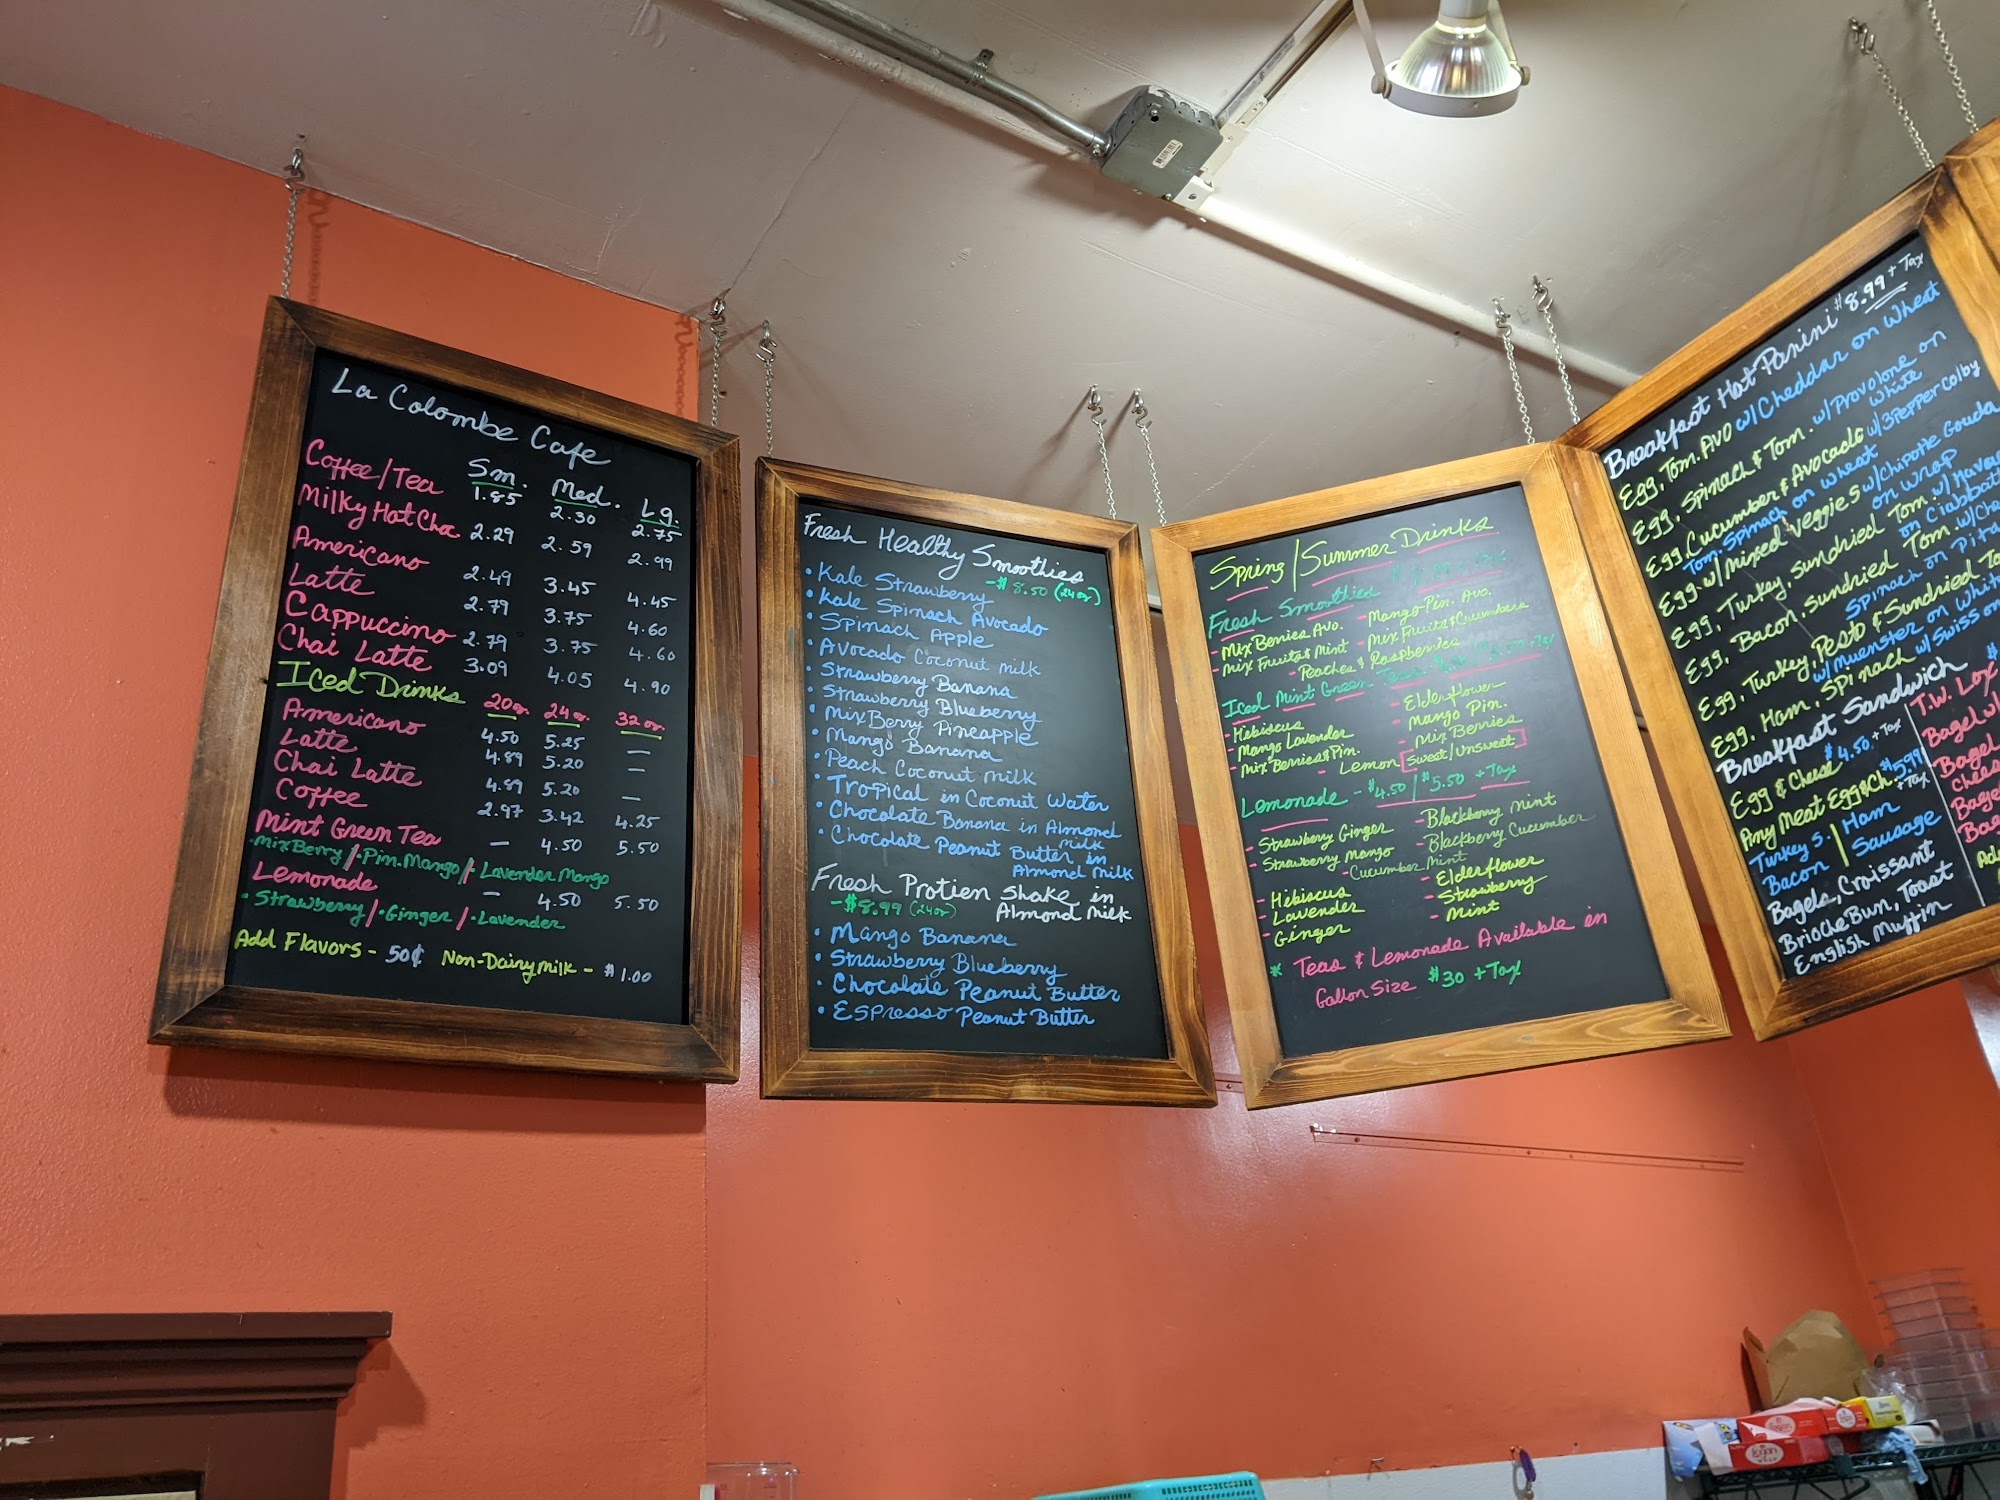 La Colombe Cafe
Sm. Med. Lg.
Coffee/Tea 1.85 2.30 2.75
Milky Hot Choc. 2.29 2.59 2.99
Americano 2.49 3.45 4.45
Latte 2.79 3.75 4.60
Cappuccino 2.79 3.75 4.60
Chai Latte 3.09 4.05 4.90
Iced Drinks 20oz. 24oz. 32oz.
Americano 4.50 5.25 —
Latte 4.89 5.20 —
Chai Latte 4.89 5.20 —
Coffee 2.97 3.42 4.25
Mint Green Tea — 4.50 5.50
·MixBerry/·Pin.Mango/·Lavender Mango
Lemonade — 4.50 5.50
·Strawberry/·Ginger/·Lavender
Add Flavors - 50¢ Non-Dairy milk - $1.00
Fresh Healthy Smoothies
-$8.50 (24oz)
• Kale Strawberry
• Kale Spinach Avocado
• Spinach Apple
• Avocado Coconut milk
• Strawberry Banana
• Strawberry Blueberry
• Mix Berry Pineapple
• Mango Banana
• Peach Coconut milk
• Tropical in Coconut Water
• Chocolate Banana in Almond
milk
• Chocolate Peanut Butter in
Almond milk
Fresh Protien Shake in
-$8.99 (24oz) Almond Milk
• Mango Banana
• Strawberry Blueberry
• Chocolate Peanut Butter
• Espresso Peanut Butter
Spring/Summer Drinks
Fresh Smoothies
- Mix Berries Avo. - Mango-Pin. Avo.
- Mix Fruits & Mint - Mix Fruits & Cucumbers
- Peaches & Raspberries
Iced Mint Green Teas
- Hibiscus - Elderflower
- Mango Lavender - Mango Pin.
- Mix Berries & Pin. - Mix Berries
- Lemon [Sweet/Unsweet]
Lemonade - $4.50/$5.50 + Tax
- Strawberry Ginger - Blackberry Mint
- Strawberry Mango - Blackberry Cucumber
- Cucumber Mint
- Hibiscus - Elderflower
- Lavender - Strawberry
- Ginger - Mint
* Teas & Lemonade Available in
Gallon Size $30 + Tax
Breakfast Hot Panini $8.99 + Tax
Egg, Tom. Avo w/Cheddar on Wheat
Egg, Spinach & Tom. w/Provolone on
White
Egg, Cucumber & Avocado w/3 Pepper Colby
Tom. Spinach on wheat
Egg w/ Mixed Veggies w/Chipotle Gouda
on Wrap
Egg, Turkey, Sundried Tom. w/
on Ciabatta
Egg, Bacon, Sundried Tom. w/
Spinach on Pita
Egg, Turkey, Pesto & Sundried
w/Muenster on
Egg, Ham, Spinach w/Swiss on
Breakfast Sandwich
Egg & Cheese $4.50 + Tax
Any Meat Egg & Ch. $5.99
+ Tax
Turkey S. | Ham
Bacon | Sausage
Bagels, Croissant
Brioche Bun, Toast
English Muffin
T.W. Lox $
Bagel w/
Bagel